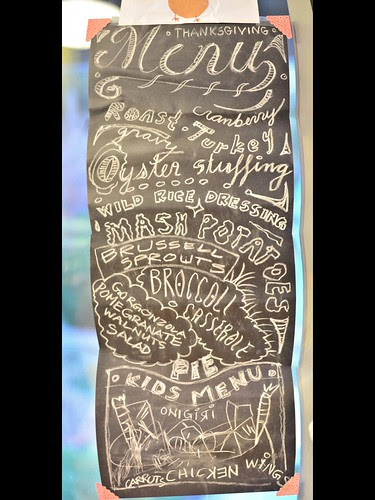 THANKSGIVING
Menu
Roast cranberry
gravy Turkey
Oyster stuffing
WILD RICE DRESSING
MASH POTATOES
BRUSSELL
SPROUTS
BROCCOLI
CASSEROLE
GORGONZOLA
POMEGRANATE
WALNUTS
SALAD
PIE
KIDS MENU
ONIGIRI
CARROTS CHICKEN WINGS